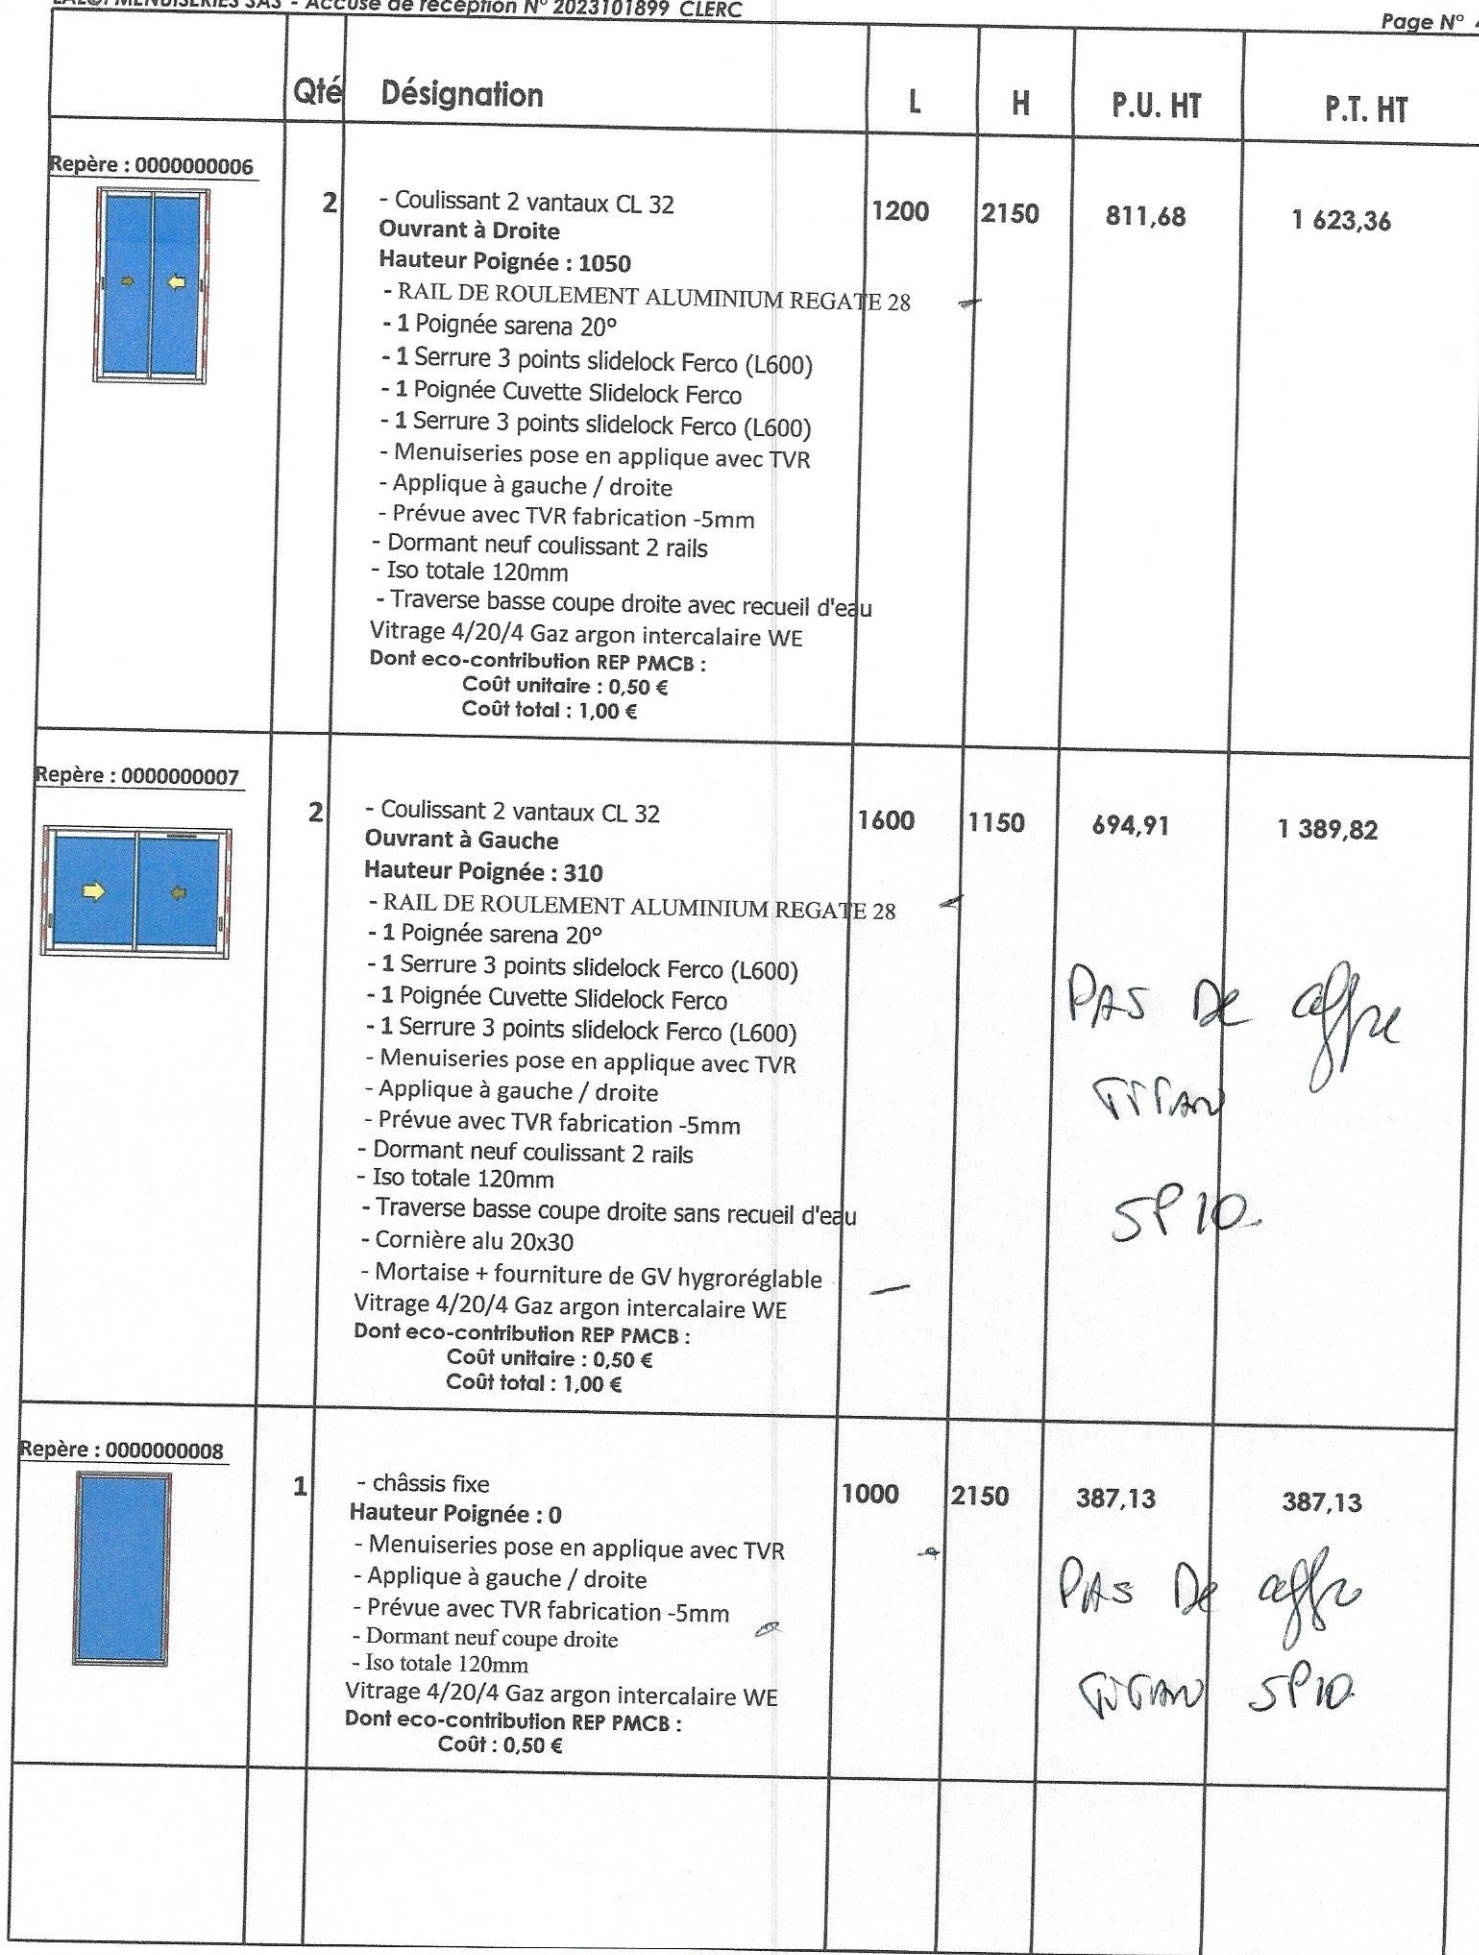 MENUISERIES SAS - Accusé de réception N° 2023101899 CLERC
Page N°
Qté Désignation L H P.U. HT P.T. HT
Repère : 0000000006
2 - Coulissant 2 vantaux CL 32 1200 2150 811,68 1 623,36
Ouvrant à Droite
Hauteur Poignée : 1050
- RAIL DE ROULEMENT ALUMINIUM REGATE 28
- 1 Poignée sarena 20°
- 1 Serrure 3 points slidelock Ferco (L600)
- 1 Poignée Cuvette Slidelock Ferco
- 1 Serrure 3 points slidelock Ferco (L600)
- Menuiseries pose en applique avec TVR
- Applique à gauche / droite
- Prévue avec TVR fabrication -5mm
- Dormant neuf coulissant 2 rails
- Iso totale 120mm
- Traverse basse coupe droite avec recueil d'eau
Vitrage 4/20/4 Gaz argon intercalaire WE
Dont eco-contribution REP PMCB :
Coût unitaire : 0,50 €
Coût total : 1,00 €
Repère : 0000000007
2 - Coulissant 2 vantaux CL 32 1600 1150 694,91 1 389,82
Ouvrant à Gauche
Hauteur Poignée : 310
- RAIL DE ROULEMENT ALUMINIUM REGATE 28
- 1 Poignée sarena 20°
- 1 Serrure 3 points slidelock Ferco (L600)
- 1 Poignée Cuvette Slidelock Ferco
- 1 Serrure 3 points slidelock Ferco (L600)
- Menuiseries pose en applique avec TVR
- Applique à gauche / droite
- Prévue avec TVR fabrication -5mm
- Dormant neuf coulissant 2 rails
- Iso totale 120mm
- Traverse basse coupe droite sans recueil d'eau
- Cornière alu 20x30
- Mortaise + fourniture de GV hygroréglable
Vitrage 4/20/4 Gaz argon intercalaire WE
Dont eco-contribution REP PMCB :
Coût unitaire : 0,50 €
Coût total : 1,00 €
PAS De
TITAN
SP10
Repère : 0000000008
1 - châssis fixe 1000 2150 387,13 387,13
Hauteur Poignée : 0
- Menuiseries pose en applique avec TVR
- Applique à gauche / droite
- Prévue avec TVR fabrication -5mm
- Dormant neuf coupe droite
- Iso totale 120mm
Vitrage 4/20/4 Gaz argon intercalaire WE
Dont eco-contribution REP PMCB :
Coût : 0,50 €
PAS De
TITAN SP10